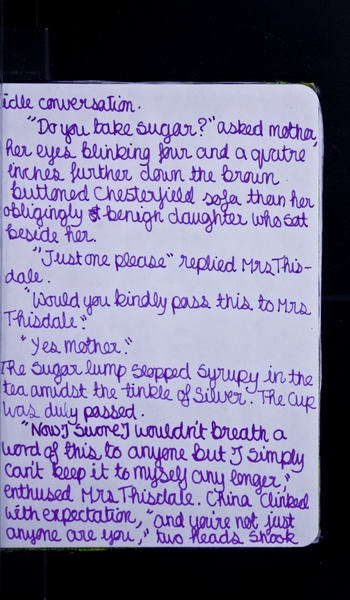 idle conversation.
"Do you take sugar?" asked mother,
her eyes blinking four and a quatre
inches further down the brown
buttoned Chesterfield sofa than her
obligingly benign daughter who sat
beside her.
"Just one please" replied Mrs This-
dale.
"Would you kindly pass this to Mrs
Thisdale."
"Yes mother."
The sugar lump slopped syrupy in the
tea amidst the tinkle of silver. The cup
was duly passed.
"Now I swore I wouldn't breath a
word of this to anyone but I simply
can't keep it to myself any longer,"
enthused Mrs Thisdale. China clinked
with expectation, "and you're not just
anyone are you," two heads shook